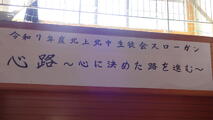 令和7年度北上北中生徒会スローガン
心路～心に決めた路を進む～